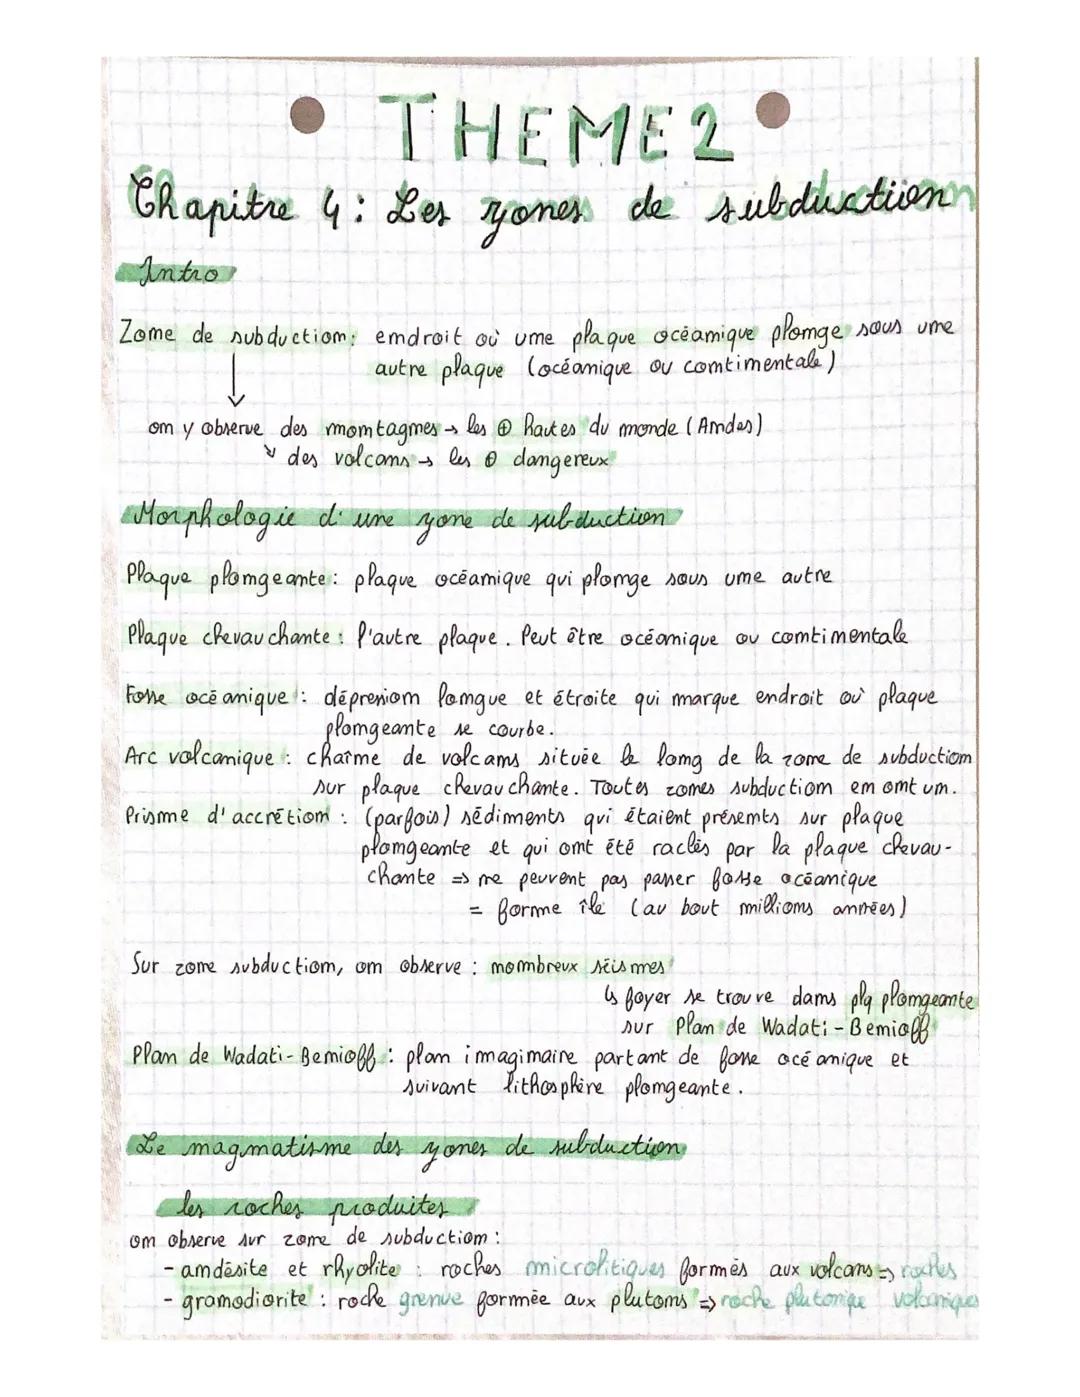 THEME 2
Chapitre 4 : Les zones de subduction
Intro
Zone de subduction : endroit où une plaque océanique plonge sous une
autre plaque (océanique ou continentale)
↓
on y observe des montagnes → les ⊕ hautes du monde (Andes)
↘ des volcans → les ⊕ dangereux
Morphologie d'une zone de subduction
Plaque plongeante : plaque océanique qui plonge sous une autre
Plaque chevauchante : l'autre plaque. Peut être océanique ou continentale
Fosse océanique : dépression longue et étroite qui marque endroit où plaque
plongeante se courbe.
Arc volcanique : chaîne de volcans située le long de la zone de subduction
sur plaque chevauchante. Toutes zones subduction en ont un.
Prisme d'accrétion : (parfois) sédiments qui étaient présents sur plaque
plongeante et qui ont été raclés par la plaque chevau-
chante ⇒ ne peuvent pas passer fosse océanique
= forme île (au bout millions années)
Sur zone subduction, on observe : nombreux séismes
↳ foyer se trouve dans plq plongeante
sur Plan de Wadati-Benioff
Plan de Wadati-Benioff : plan imaginaire partant de fosse océanique et
suivant lithosphère plongeante.
Le magmatisme des zones de subduction
les roches produites
on observe sur zone de subduction :
- andésite et rhyolite : roches microlitiques formés aux volcans ⇒ roches
- granodiorite : roche grenue formée aux plutons ⇒ roche plutonique volcaniques